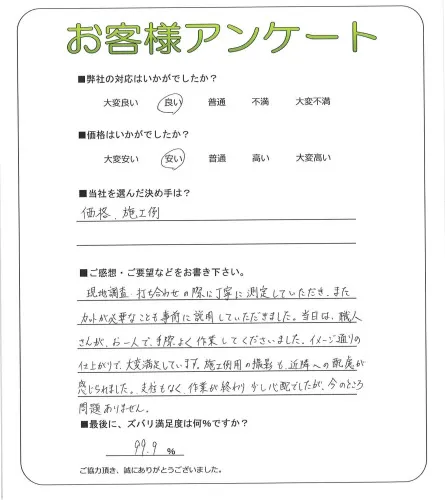 お客様アンケート
■弊社の対応はいかがでしたか?
大変良い 良い 普通 不満 大変不満
■価格はいかがでしたか?
大変安い 安い 普通 高い 大変高い
■当社を選んだ決め手は?
価格、施工例
■ご感想・ご要望などをお書き下さい。
現地調査・打ち合わせの際に丁寧に測定していただき、また
カットが必要なことも事前に説明していただきました。当日は、職人
さんが、お一人で、手際よく作業してくださいました。イメージ通りの
仕上がりで、大変満足しています。施工例用の撮影も、近隣への配慮が
感じられました。支柱もなく、作業が終わり少し心配でしたが、今のところ
問題ありません。
■最後に、ズバリ満足度は何%ですか?
99.9 %
ご協力頂き、誠にありがとうございました。